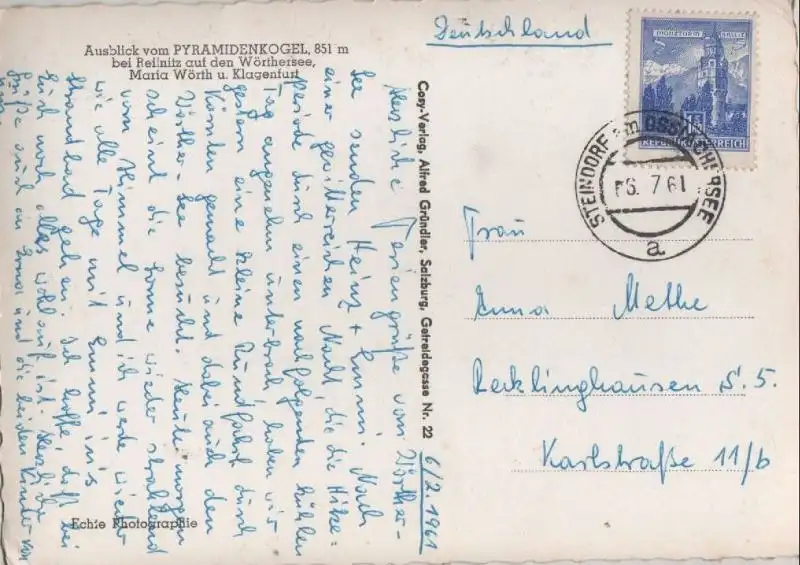 Ausblick vom PYRAMIDENKOGEL, 851 m
bei Reifnitz auf den Wörthersee,
Maria Wörth u. Klagenfurt
Herzliche Feriengrüße vom Wörther-
See senden Heinz + Emmi. Nach
einer gewitterreichen Nacht, die die Hitze-
periode durch einen nachfolgenden kühlen
Tag angenehm unterbrach, haben wir
gestern eine kleine Rundfahrt durch
Kärnten gemacht und dabei auch den
Wörther-See besucht. Heute morgen
scheint die Sonne wieder strahlend
vom Himmel und ich werde wieder
wie alle Tage mit Emmi in's
Strandbad gehen. Ich hoffe, daß bei
Euch noch alles wohlauf ist. Herzliche
Grüße auch an und die beiden Kinder von
Echte Photographie
Cosy-Verlag, Alfred Gründler, Salzburg, Getreidegasse Nr. 22
6/7. 1961
Deutschland
MÜNZTURM HALL I.T.
REPUBLIK ÖSTERREICH
STEINDORF am OSSIACHERSEE
-6. 7 61
a
Frau
Anna Methe
Recklinghausen S. 5.
Karlstraße 11/b